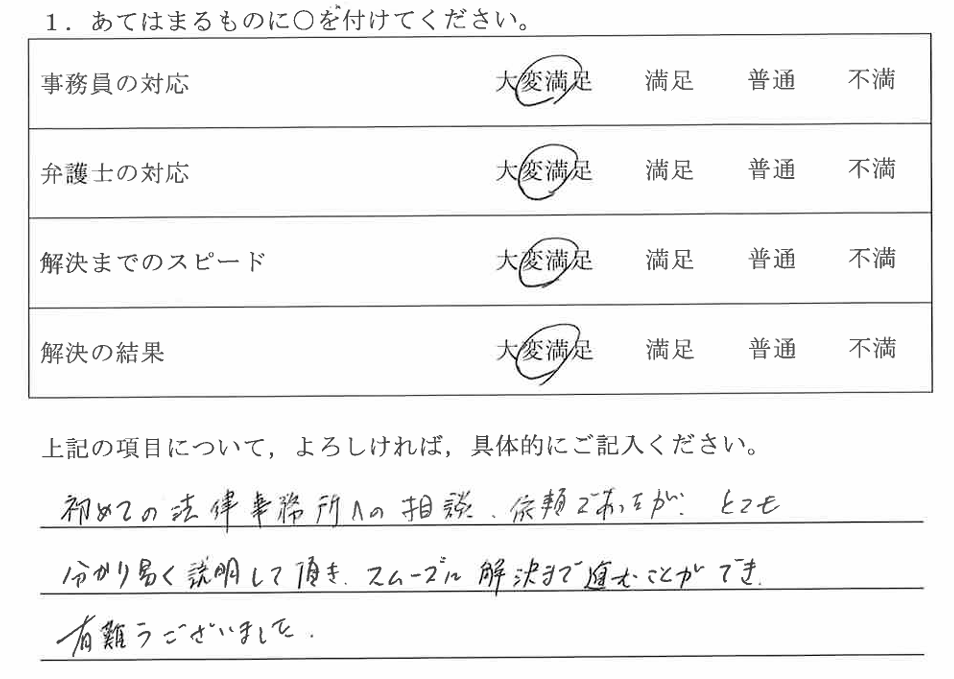 1．あてはまるものに〇を付けてください。
事務員の対応 大変満足 満足 普通 不満
弁護士の対応 大変満足 満足 普通 不満
解決までのスピード 大変満足 満足 普通 不満
解決の結果 大変満足 満足 普通 不満
上記の項目について，よろしければ，具体的にご記入ください。
初めての法律事務所への相談、依頼であったが、とても
分かり易く説明して頂き、スムーズに解決まで進むことができ、
有難うございました。